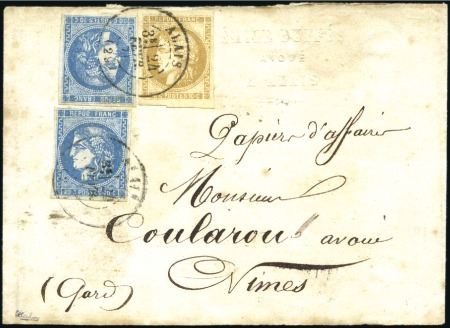 REPUB FRANC
ALAIS
AVOUÉ
REPUB FRANC
Papiers d'affaires
Monsieur
Coularou avoué
Nîmes
(Gard)